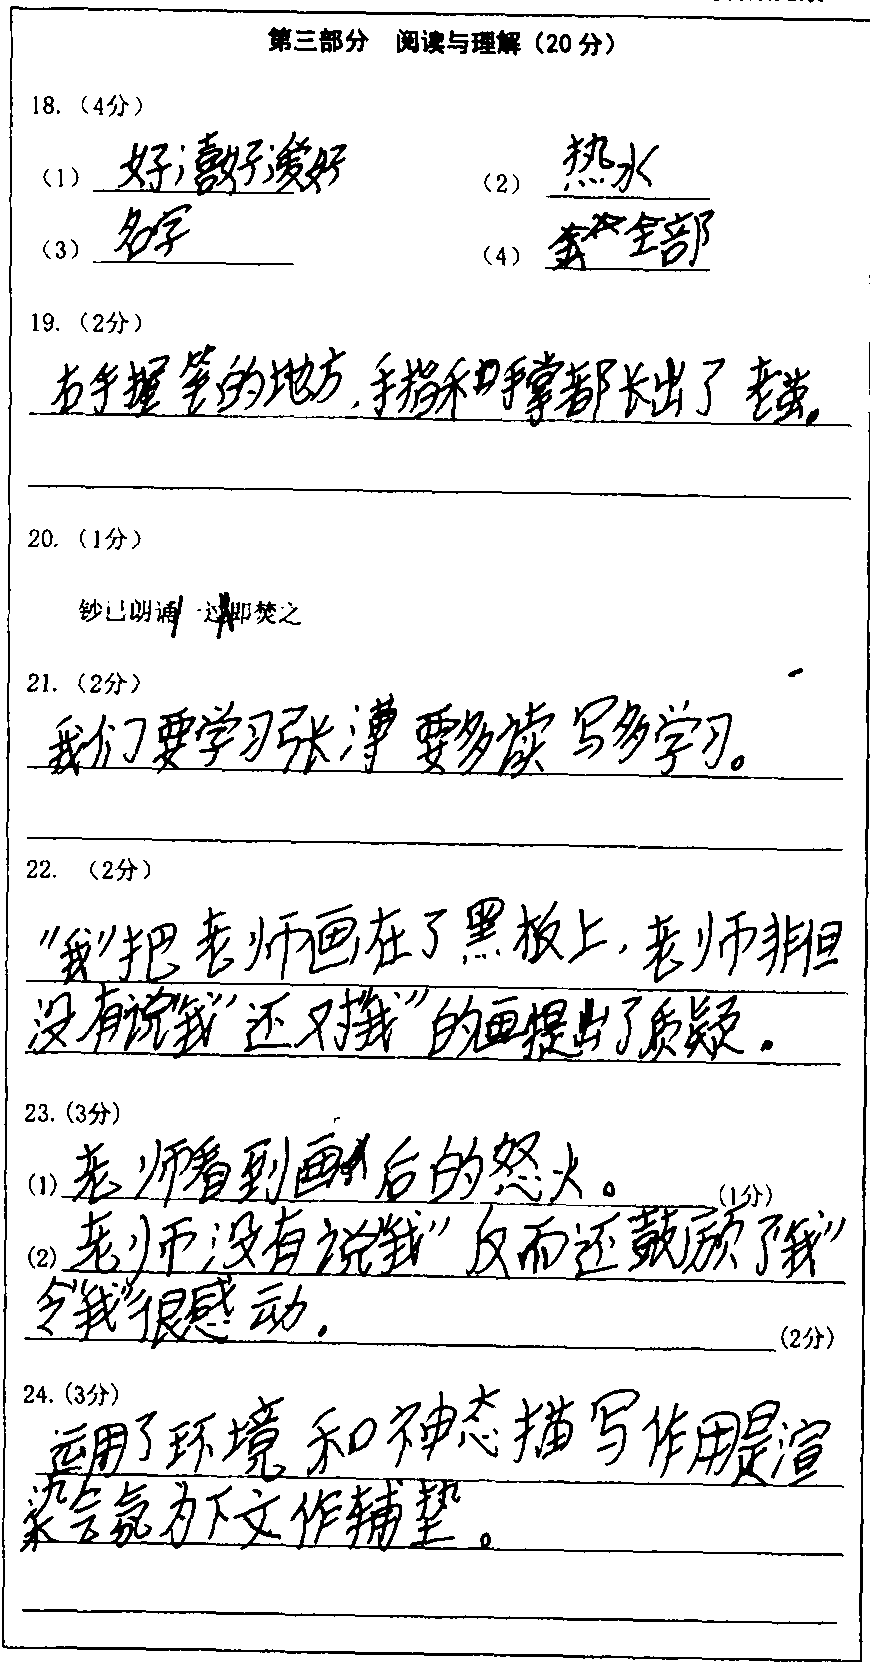 第三部分 阅读与理解（20分）
18.（4分）
（1）好;喜好;爱好 （2）热水
（3）名字 （4）全部
19.（2分）
右手握笔的地方,手指和手掌部长出了老茧。
20.（1分）
钞已朗诵/一过/即焚之
21.（2分）
我们要学习张溥要多读写多学习。
22. （2分）
"我"把老师画在了黑板上,老师非但
没有说"我"还对"我"的画提出了质疑.
23.(3分)
(1)老师看到画后的怒火。(1分)
(2)老师没有说"我"反而还鼓励了"我"
令"我"很感动. (2分)
24.(3分)
运用了环境和神态描写作用是渲
染气氛为下文作辅垫。